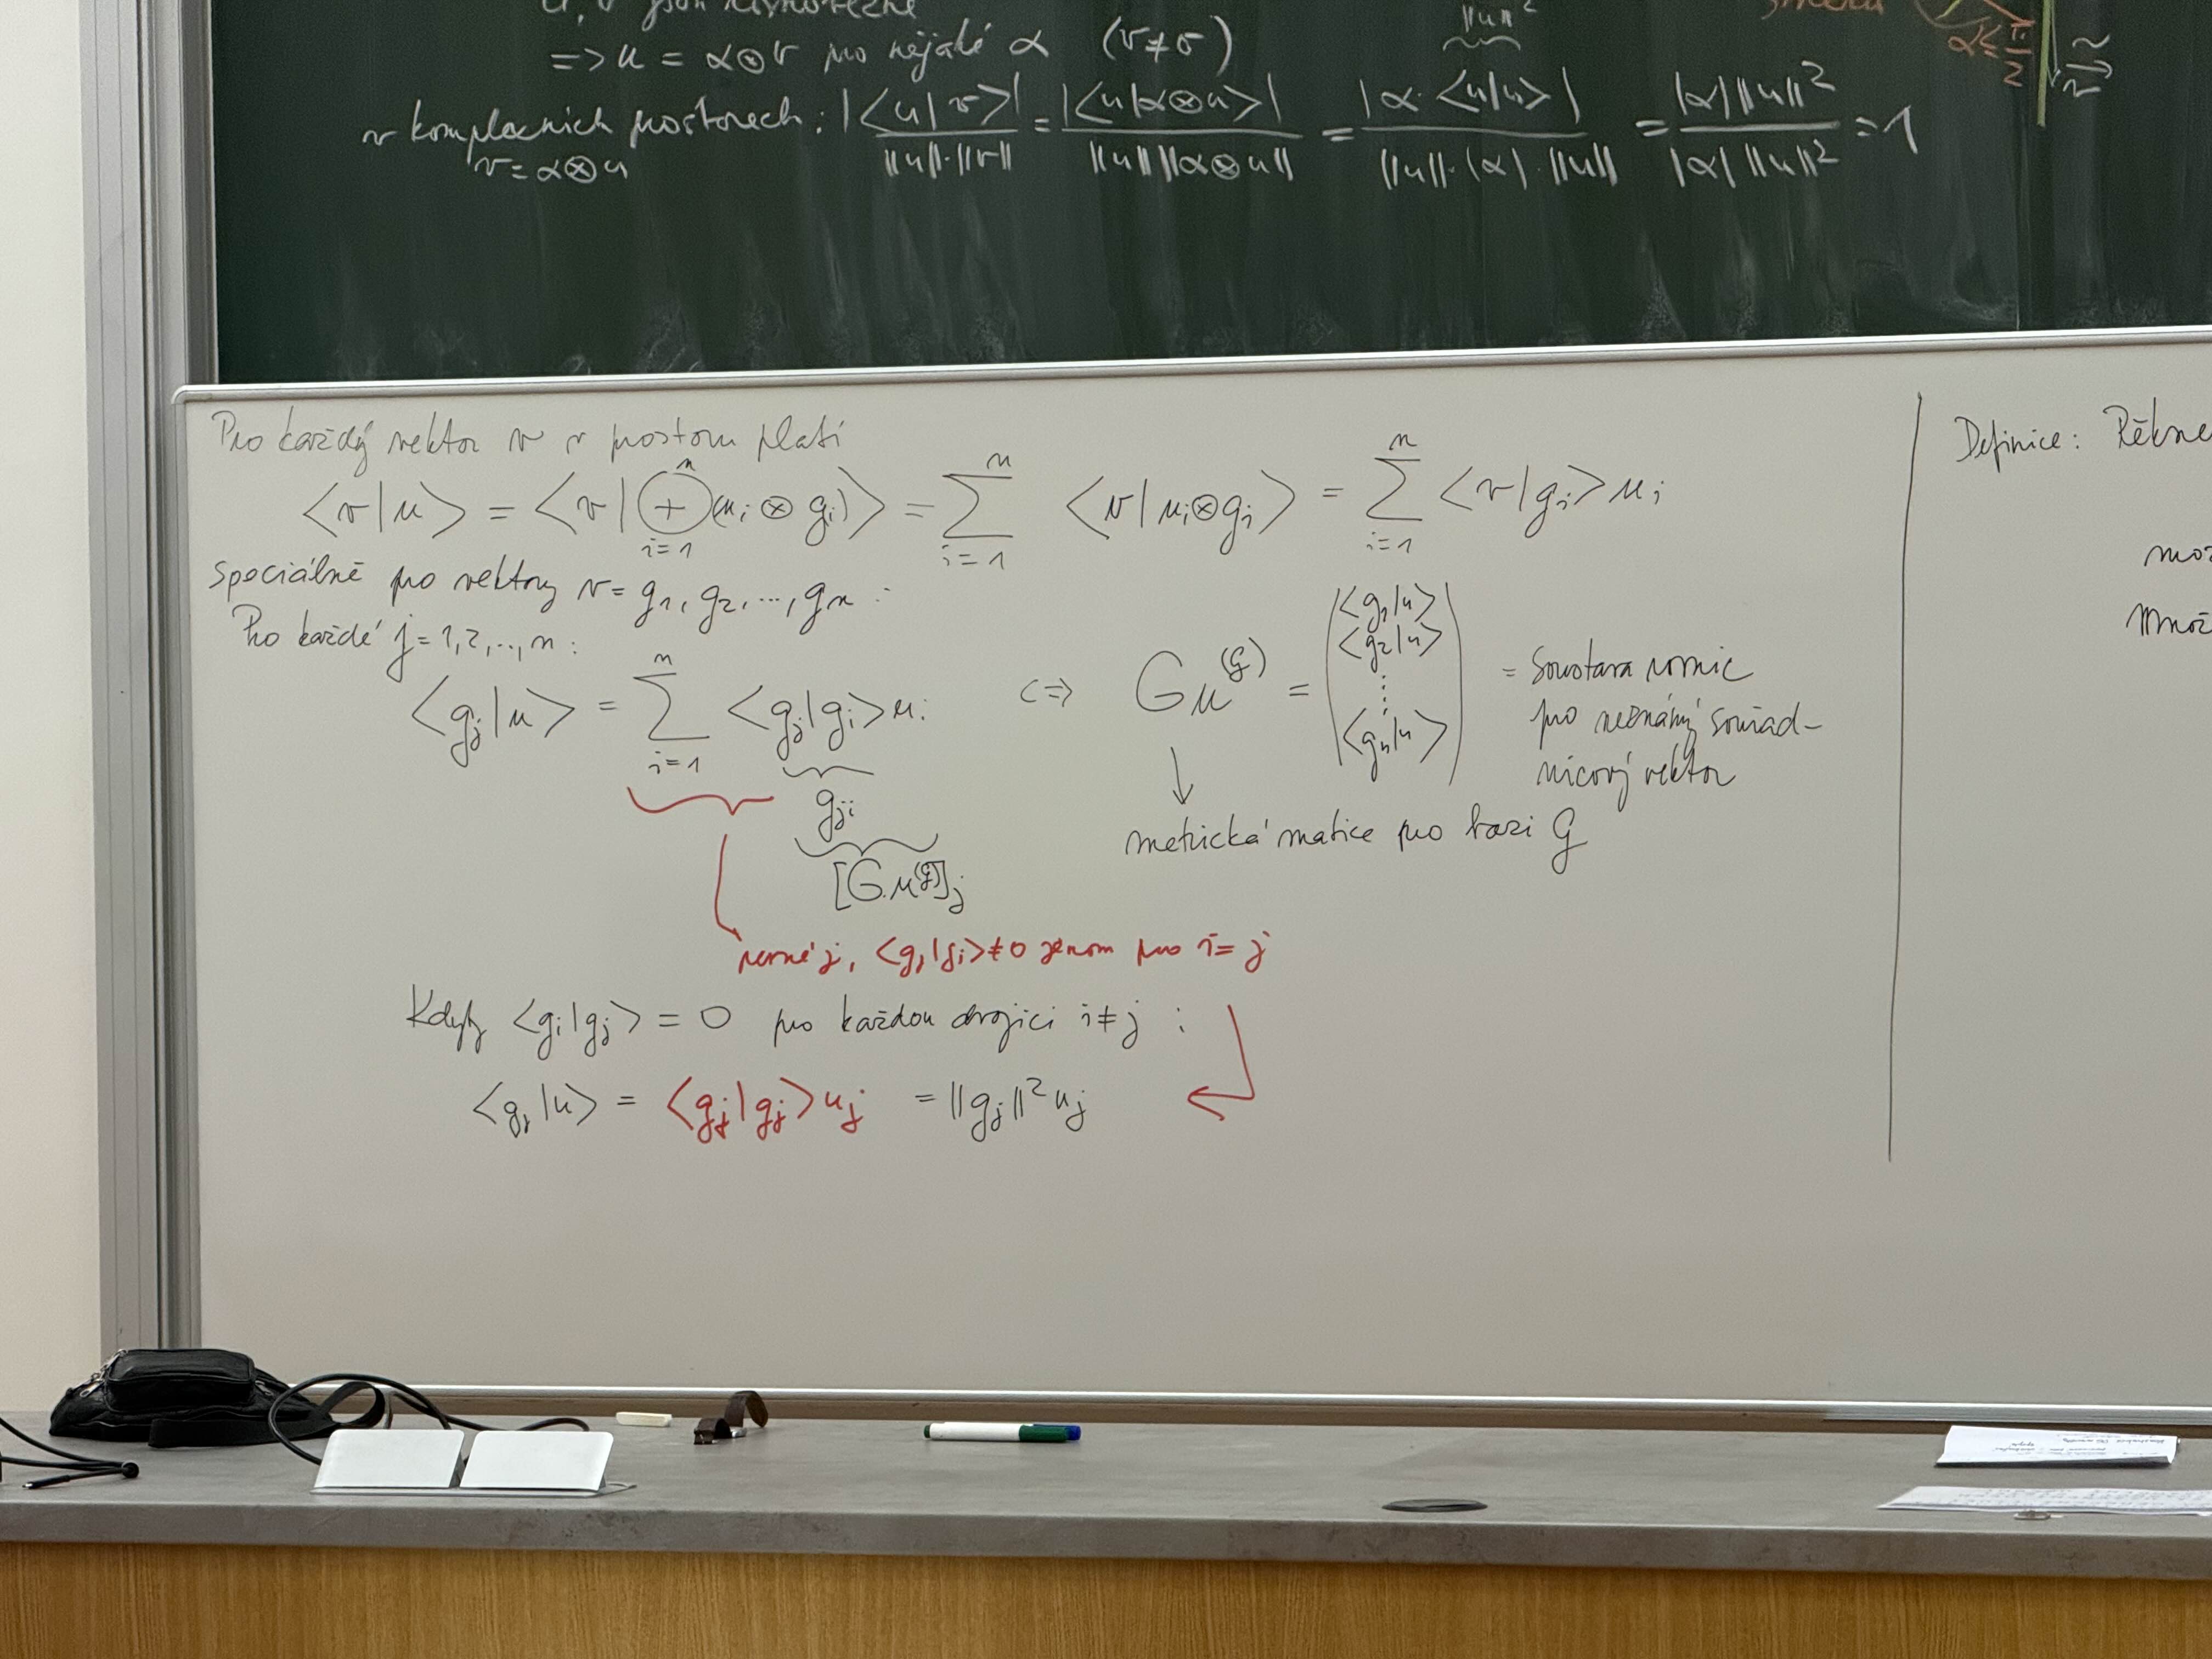 u, v jsou
=> u = α⊗v pro nějaké α (v≠σ)
‖u‖²
v komplexních prostorech: |<u|v>| / ‖u‖·‖v‖ = |<u|α⊗u>| / ‖u‖ ‖α⊗u‖ = |α·<u|u>| / ‖u‖·|α|·‖u‖ = |α| ‖u‖² / |α| ‖u‖² = 1
v = α⊗u
směru
α ≤ π/2
Pro každý vektor v v prostoru platí
<v|u> = <v| ⊕_{i=1}^{n} (u_i ⊗ g_i)> = ∑_{i=1}^{n} <v|u_i⊗g_i> = ∑_{i=1}^{n} <v|g_i> u_i
speciálně pro vektory v = g_1, g_2, ..., g_n :
Pro každé j = 1, 2, .., n :
<g_j|u> = ∑_{i=1}^{n} <g_j|g_i> u_i <=> G u^{(G)} = ( <g_1|u> <g_2|u> ⋮ <g_n|u> ) = Soustava rovnic
pro neznámý souřad-
nicový vektor
g_{ji}
[G u^{(G)}]_j
metrická matice pro bazi G
pevné j, <g_j|g_i> ≠ 0 jenom pro i = j
Když <g_i|g_j> = 0 pro každou dvojici i ≠ j :
<g_j|u> = <g_j|g_j> u_j = ‖g_j‖² u_j
Definice: Řekne
Množ